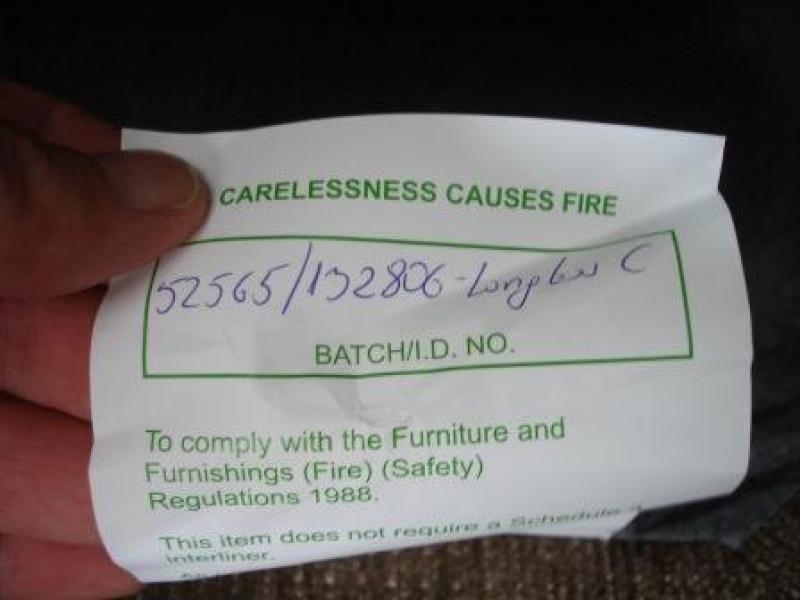 CARELESSNESS CAUSES FIRE
52565/132806 - C
BATCH/I.D. NO.
To comply with the Furniture and
Furnishings (Fire) (Safety)
Regulations 1988.
This item does not require a Schedule 3
interliner.